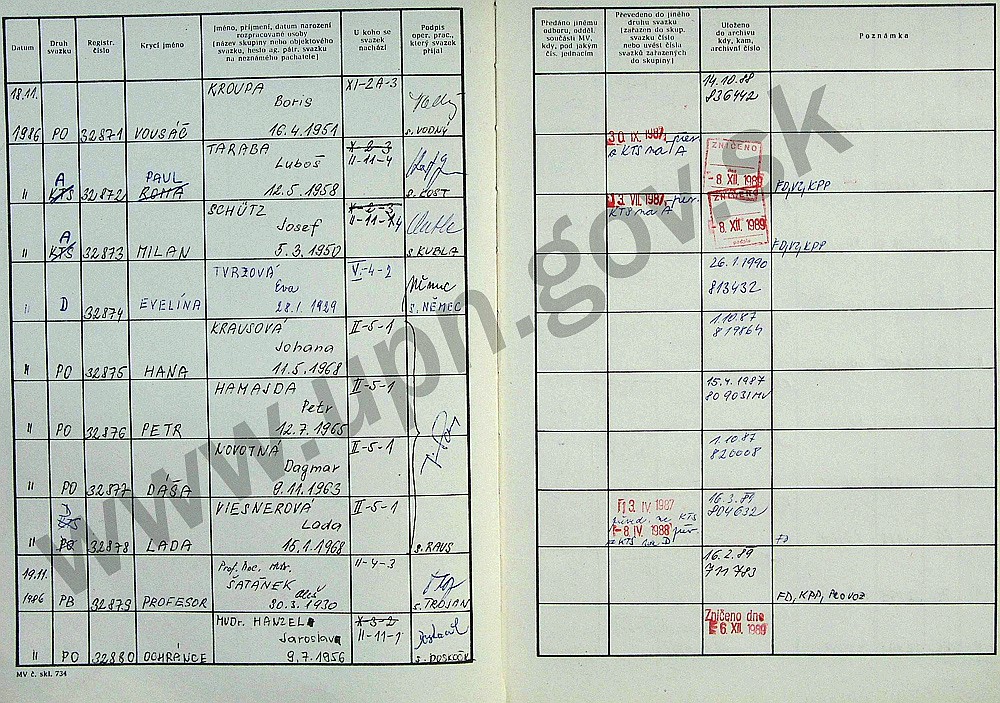 Datum
Druh svazku
Registr. číslo
Krycí jméno
Jméno, příjmení, datum narození
rozpracované osoby
(název skupiny nebo objektového
svazku, heslo ag. pátr. svazku
na neznámého pachatele)
U koho se
svazek
nachází
Podpis
oper. prac.,
který svazek
přijal
Předáno jinému
odboru, odděl.
součásti MV,
kdy, pod jakým
čís. jednacím
Převedeno do jiného
druhu svazku
(zařazen do skup.
svazku číslo
nebo uvést čísla
svazků zařazených
do skupiny)
Uloženo
do archivu
kdy, kam,
archivní číslo
Poznámka
18.11.
KROUPA
XI-2A-3
Boris
1986 PO 32871 VOUSÁČ 16.4.1951 s. VODNÝ
14.10.88
836442
TARABA
X-2-3
II-11-4
A PAUL Luboš
KTS 32872 12.5.1958 s. KOST
30. IX. 1987,
a KTS na A
ZNIČENO
-8. XII. 1989
FD, VZ, KPP
SCHÜTZ
X-2-3
II-11-14
A Josef
KTS 32873 MILAN 5.3.1950 s. KUBLA
13. VII. 1987,
KTS na A
ZNIČENO
-8. XII. 1989
FD, VZ, KPP
TVRZOVÁ
V-4-2
Eva
Němec
" D 32874 EVELÍNA 28.1.1929 s. NĚMEC
26.1.1990
813432
KRAUSOVÁ
II-5-1
Johana
" PO 32875 HANA 11.5.1968
1.10.87
819864
HAMAJDA
II-5-1
Petr
" PO 32876 PETR 12.7.1965
15.4.1987
809031 MV
NOVOTNÁ
II-5-1
Dagmar
" PO 32877 DÁŠA 9.11.1963
1.10.87
820008
VIESNEROVÁ
II-5-1
D
KTS Lada
" PO 32878 LADA 15.1.1968 s. RAUS
13. IV. 1987
KTS
-8. IV. 1988
z KTS na D
16.3.89
804632
FD
19.11.
Prof. Doc. MUDr.
II-4-3
ŠATÁNEK
Aleš
1986 PB 32879 PROFESOR 30.3.1930 s. TROJAN
16.2.89
711783
FD, KPP, PROVOZ
MUDr. HANZEL
X-3-2
II-11-1
Jaroslav
" PO 32880 OCHRÁNCE 9.7.1956 s. DOSKOČIL
Zničeno dne
6. XII. 1989
MV č. skl. 734
www.upn.gov.sk